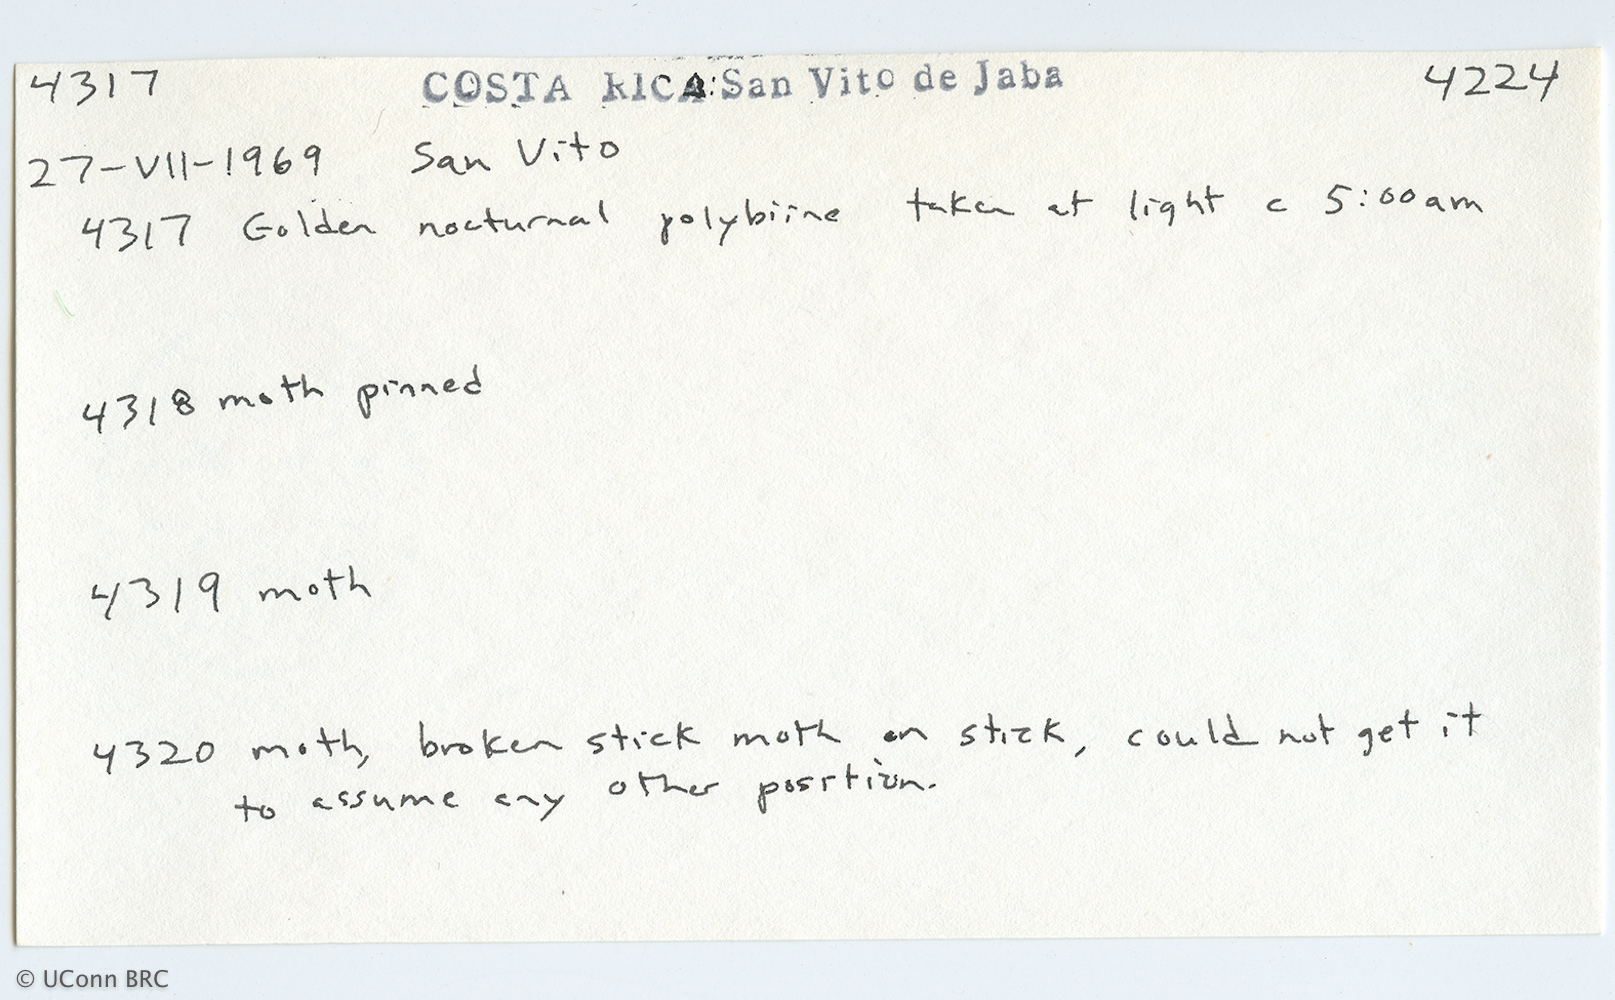 4317 COSTA RICA: San Vito de Jaba 4224
27-VII-1969 San Vito
4317 Golden nocturnal polybiine taken at light c 5:00am
4318 moth pinned
4319 moth
4320 moth, broken stick moth on stick, could not get it
to assume any other position.
© UConn BRC